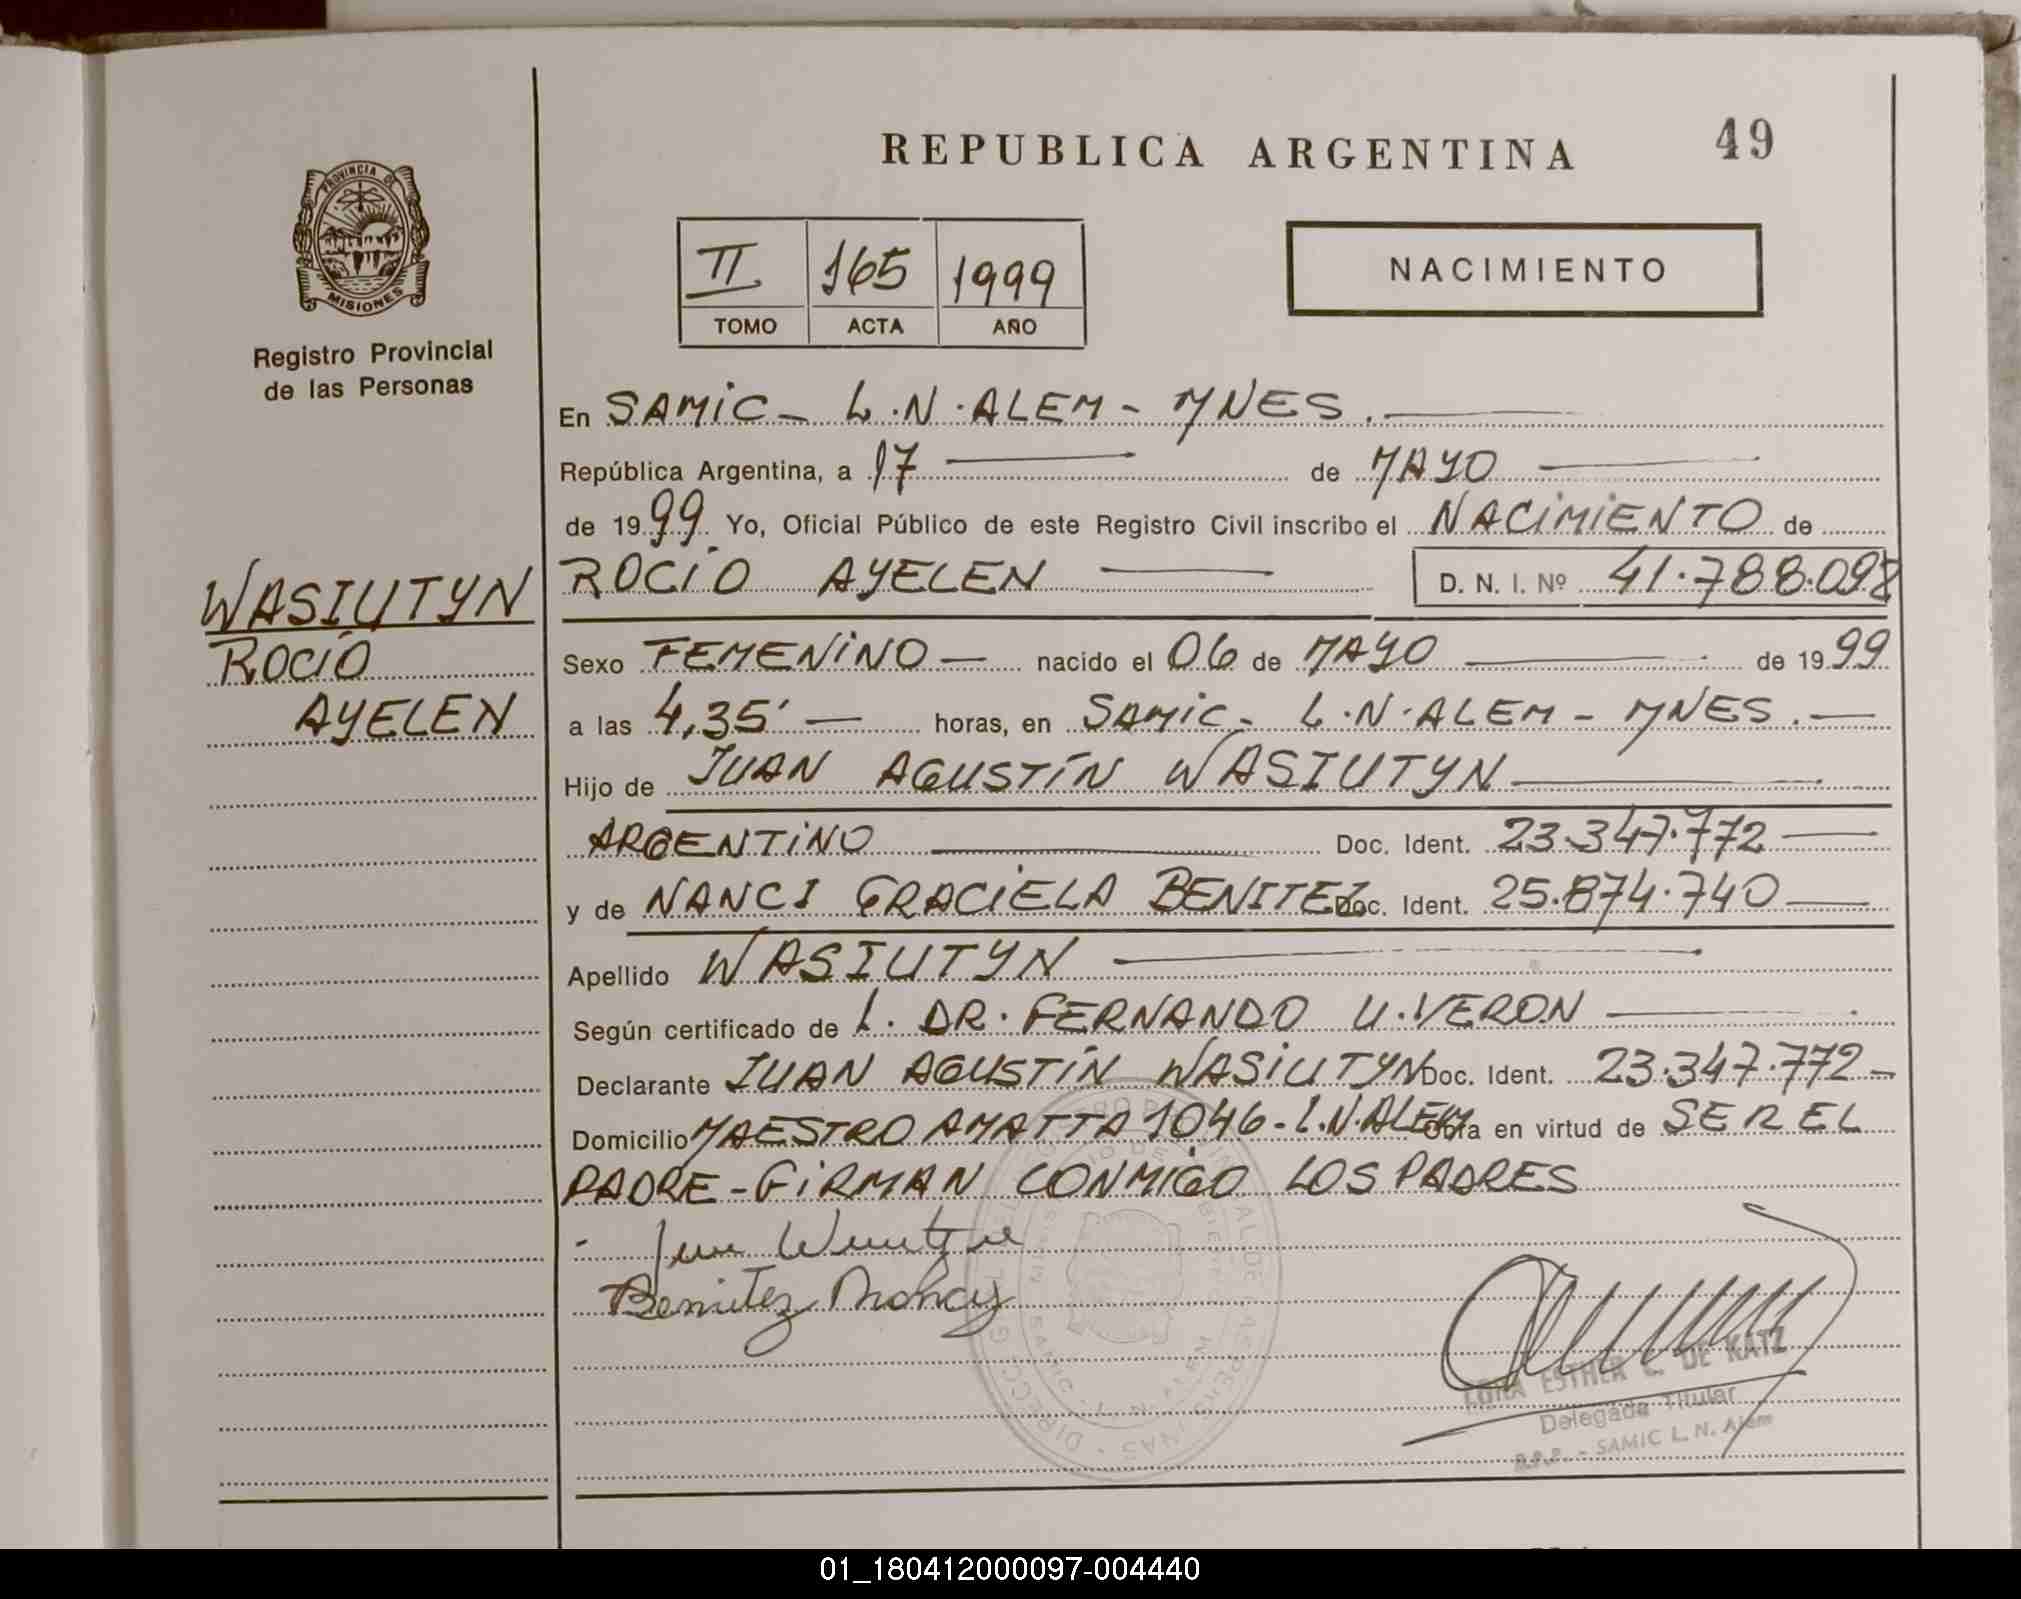 REPUBLICA ARGENTINA
49
PROVINCIA DE
MISIONES
Registro Provincial
de las Personas
II 165 1999
TOMO ACTA AÑO
NACIMIENTO
En SAMIC - L.N. ALEM - MNES.
República Argentina, a 17 de MAYO
de 1999 Yo, Oficial Público de este Registro Civil inscribo el NACIMIENTO de
WASIUTYN
ROCIO
AYELEN
ROCIO AYELEN D. N. I. Nº 41.788.098
Sexo FEMENINO - nacido el 06 de MAYO de 1999
a las 4,35' horas, en SAMIC - L.N. ALEM - MNES.
Hijo de JUAN AGUSTÍN WASIUTYN
ARGENTINO Doc. Ident. 23.347.772
y de NANCI GRACIELA BENITEZ Doc. Ident. 25.874.740
Apellido WASIUTYN
Según certificado de L. DR. FERNANDO U. VERON
Declarante JUAN AGUSTÍN WASIUTYN Doc. Ident. 23.347.772
Domicilio MAESTRO AMATTA 1046 - L.N. ALEM Obra en virtud de SER EL
PADRE - FIRMAN CONMIGO LOS PADRES
Benitez Nancy
ESTHER C. DE KATZ
Delegada Titular
R.P.P. - SAMIC L. N. Alem
01_180412000097-004440